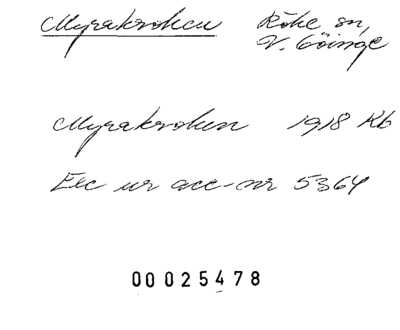 Myrakroken Röke sn,
V. Göinge
Myrakroken 1918 Kb
Exc ur acc-nr 5364
00025478